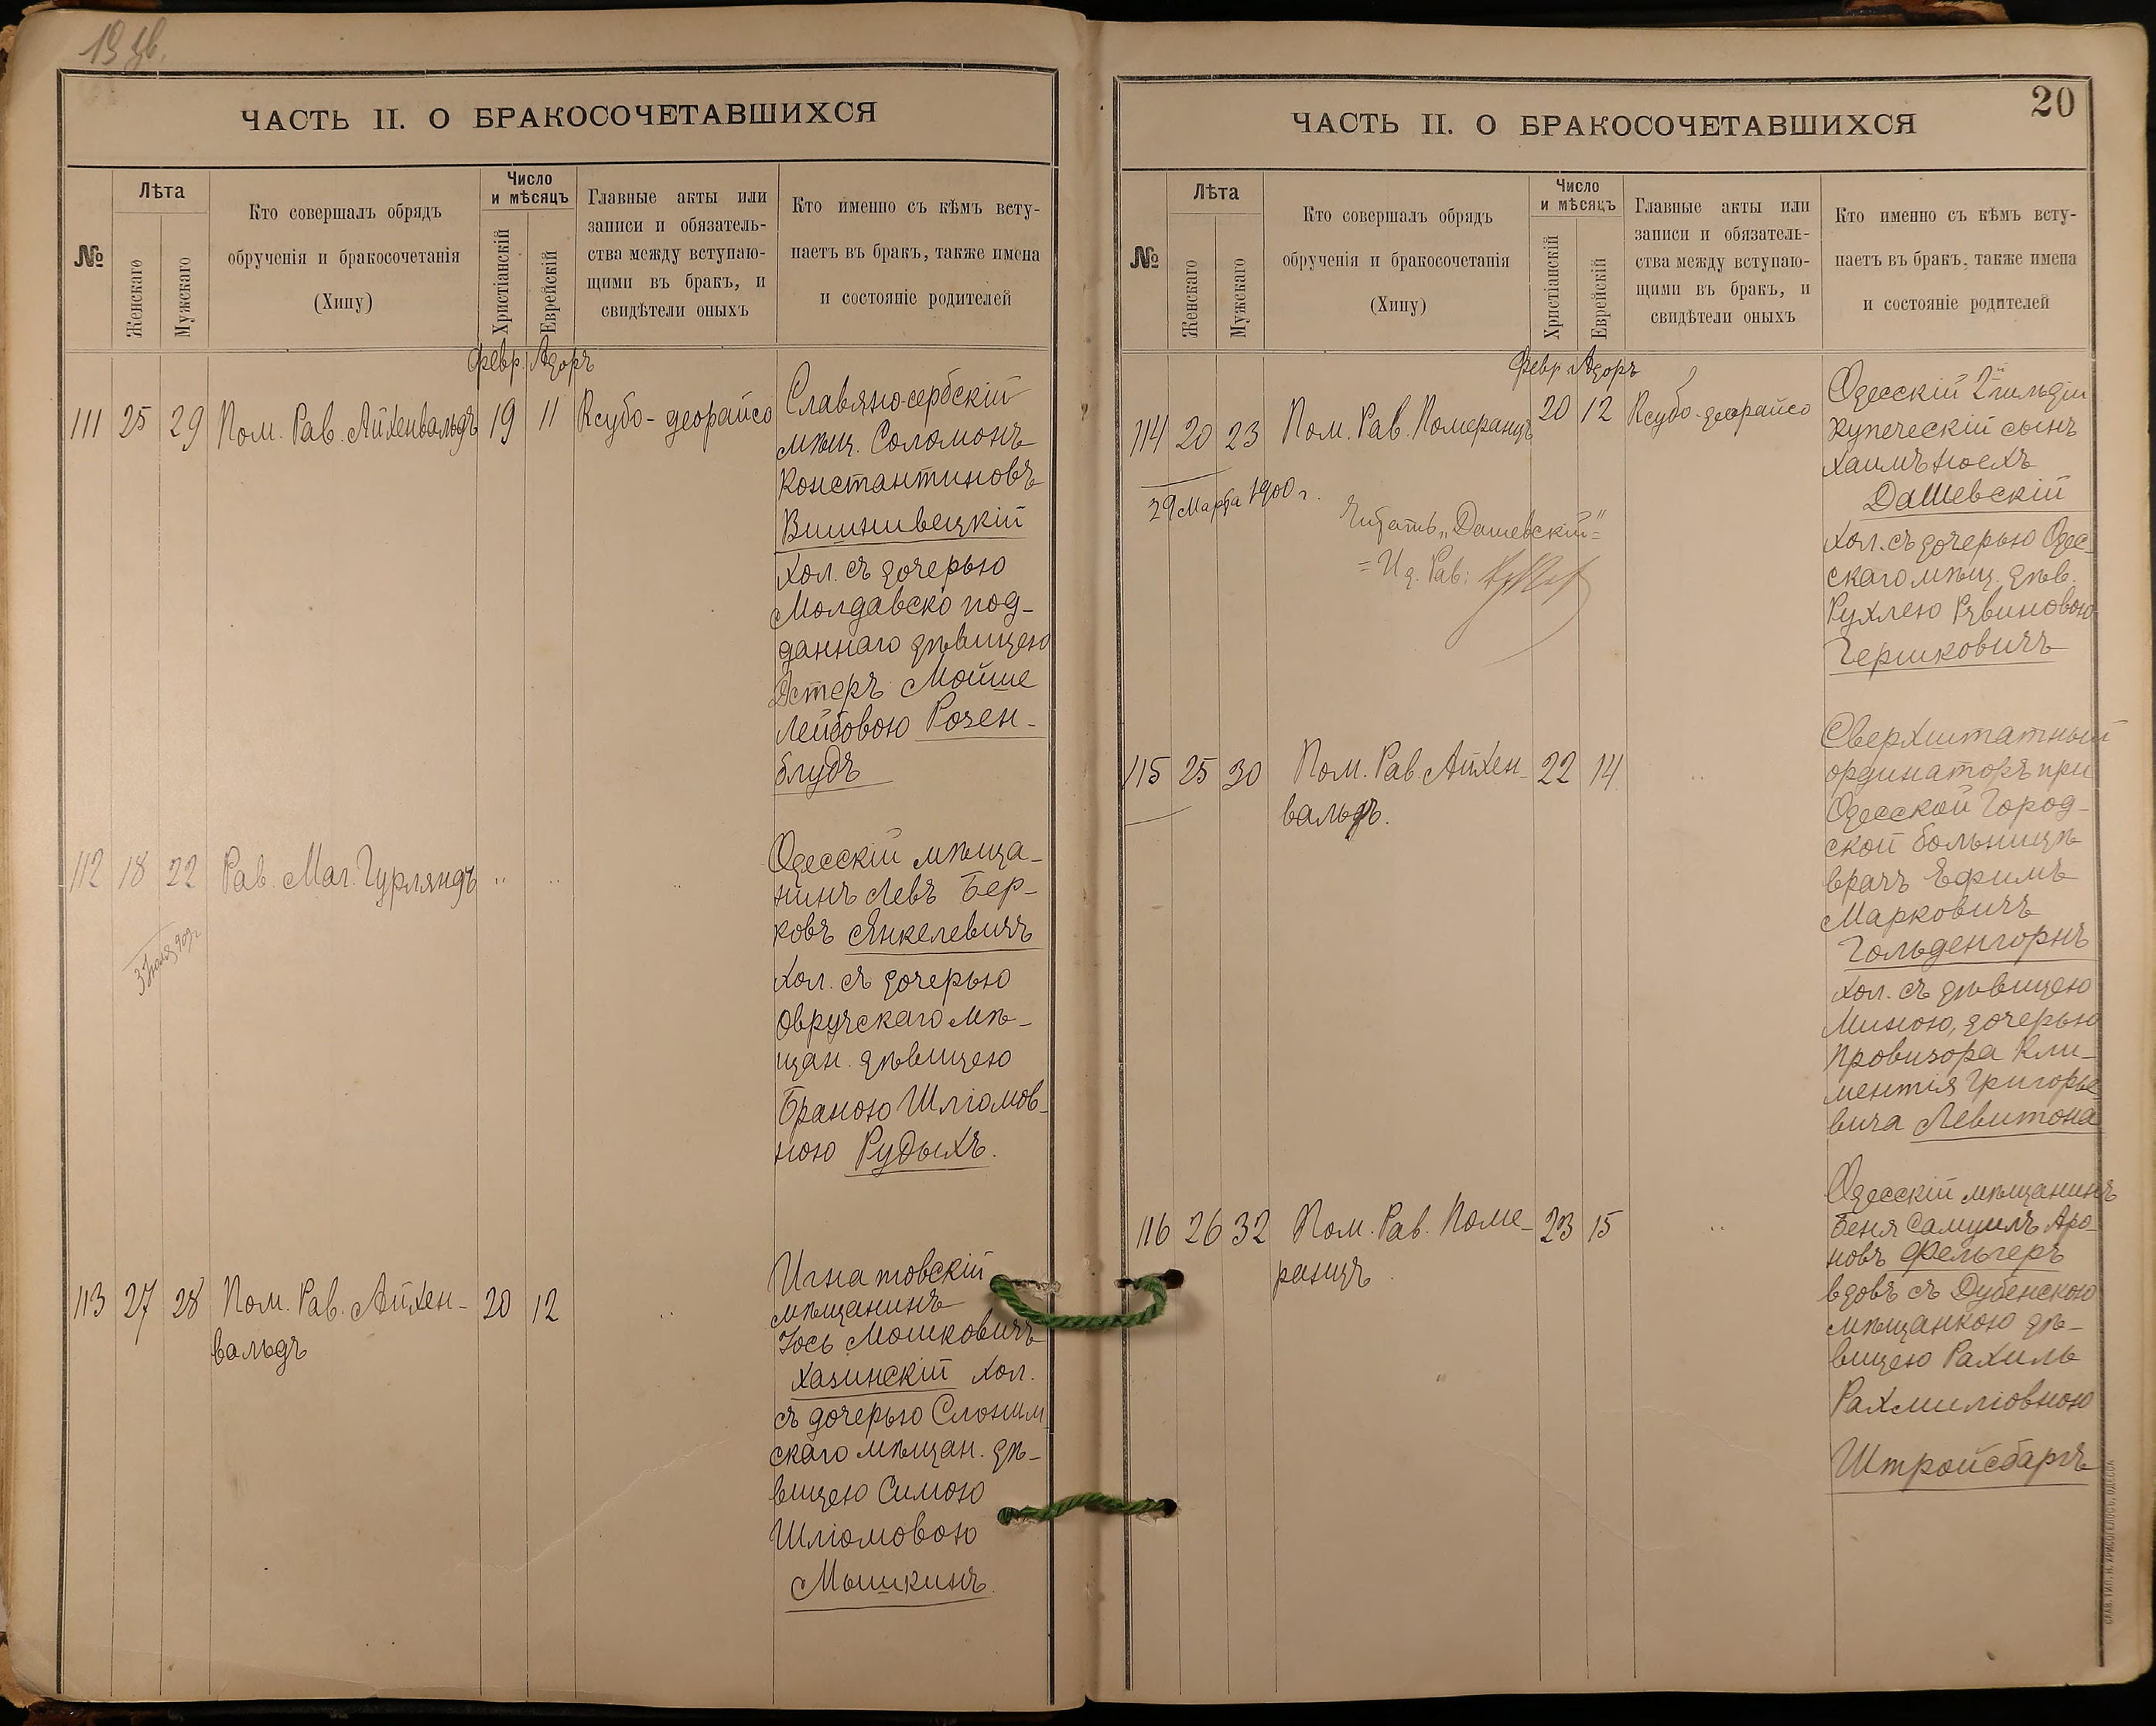 ЧАСТЬ II. О БРАКОСОЧЕТАВШИХСЯ
№
Лѣта
Женскаго
Мужскаго
Кто совершалъ обрядъ
обрученія и бракосочетанія
(Хипу)
Число
и мѣсяцъ
Христіанскій
Еврейскій
Главные акты или
записи и обязатель-
ства между вступаю-
щими въ бракъ, и
свидѣтели оныхъ
Кто именно съ кѣмъ всту-
паетъ въ бракъ, также имена
и состояніе родителей
Февр. Адоръ
111 25 29 Пом. Рав. Айхенвальдъ 19 11 Ксубо-деорайсо
Славяносербскій
мѣщ. Соломонъ
Константиновъ
Вишнивецкій
хол. съ дочерью
Молдавско под-
даннаго дѣвицею
Эстеръ Мойше
Лейбовою Розен-
блудъ
112 18 22 Рав. Маг. Гурляндъ " " "
Одесскій мѣща-
нинъ Левъ Бер-
ковъ Янкелевичъ
хол. съ дочерью
Овручскаго мѣ-
щан. дѣвицею
Браною Шліомов-
ною Рудыхъ.
113 27 28 Пом. Рав. Айхен-
вальдъ
20 12 "
Игнатовскій
мѣщанинъ
Іось Мошковичъ
Хазинскій хол.
съ дочерью Слоним
скаго мѣщан. дѣ-
вицею Симою
Шліомовою
Мышкинъ.
ЧАСТЬ II. О БРАКОСОЧЕТАВШИХСЯ
20
№
Лѣта
Женскаго
Мужскаго
Кто совершалъ обрядъ
обрученія и бракосочетанія
(Хипу)
Число
и мѣсяцъ
Христіанскій
Еврейскій
Главные акты или
записи и обязатель-
ства между вступаю-
щими въ бракъ, и
свидѣтели оныхъ
Кто именно съ кѣмъ всту-
паетъ въ бракъ, также имена
и состояніе родителей
Февр Адоръ
114 20 23 Пом. Рав. Померанцъ 20 12 Ксубо-деорайсо
29 Марта 1900 г.
Читать „Дашевскій"=
=И д. Рав:
Одесскій 2й гильдіи
купеческій сынъ
Хаимъ Ноехъ
Дашевскій
хол. съ дочерью Одес-
скаго мѣщ. дѣв.
Рухлею Рувиновою
Гершковичъ
115 25 30 Пом. Рав. Айхен-
вальдъ.
22 14 "
Сверхштатный
ординаторъ при
Одесской Город-
ской больницѣ
врачъ Ефимъ
Марковичъ
Гольденгорнъ
хол. съ дѣвицею
Миною, дочерью
провизора Кли-
ментія Григорье-
вича Левитона
116 26 32 Пом. Рав. Поме-
ранцъ
23 15 "
Одесскій мѣщанинъ
Беня Самуилъ Аро-
новъ Фельгеръ
вдовъ съ Дубенскою
мѣщанкою дѣ-
вицею Рахиль
Рахмиліовною
Штройсбаргъ
СЛАВ. ТИП. Н. ХРИСОГЕЛОСЪ, ОДЕССА